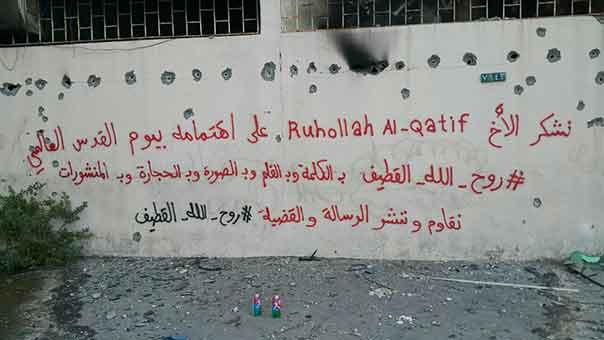 نشكر الأخ Ruhollah Al-Qatif على اهتمامه بيوم القدس العالمي
#روح_الله_القطيف بـ الكلمة وبـ القلم وبـ الصورة وبـ الحجارة وبـ المنشورات
نقاوم و ننشر الرسالة و القضية #روح_الله_القطيف